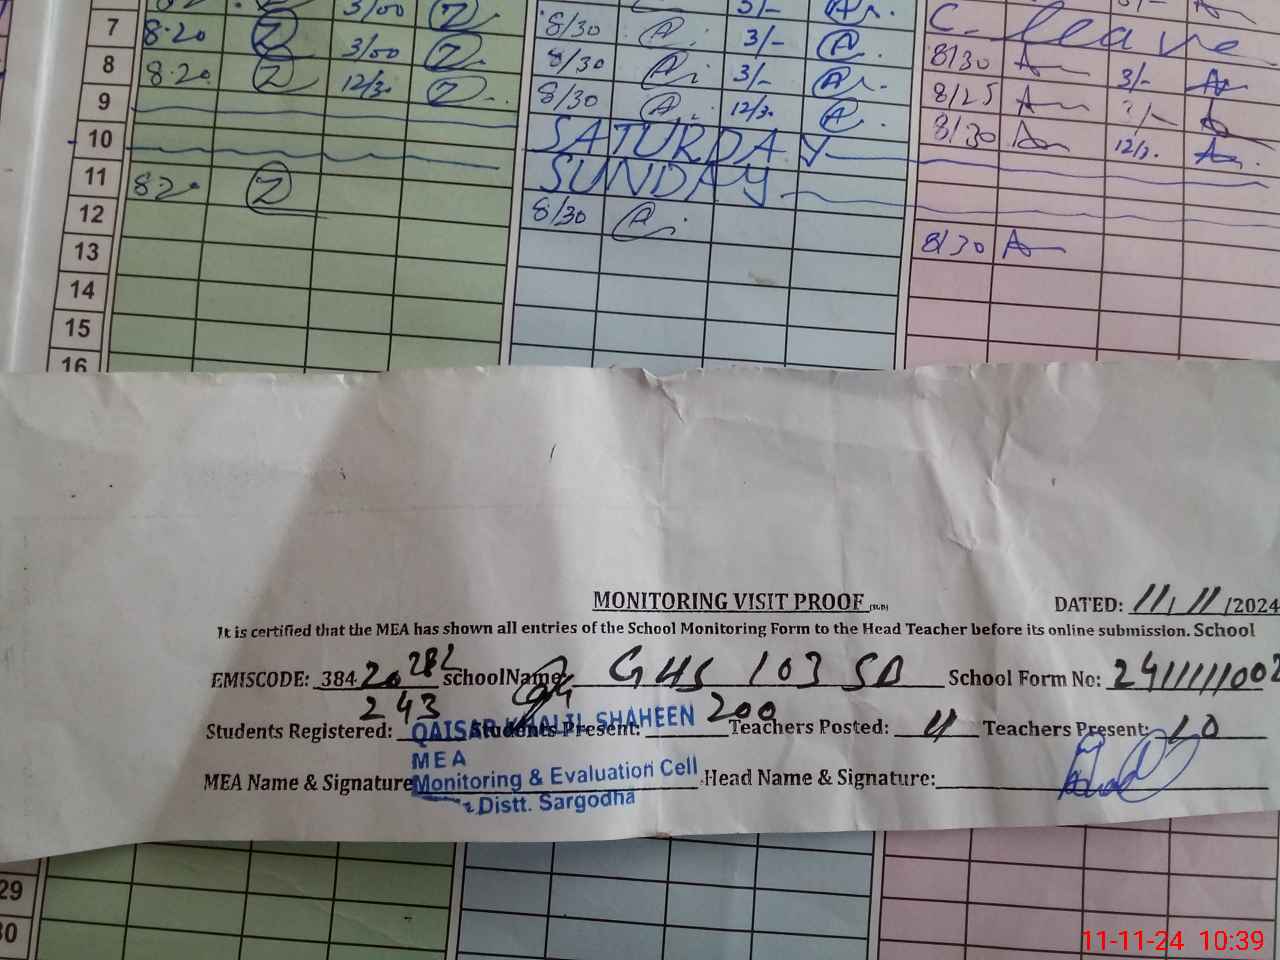 7 8.20 3/00 8/30 3/- C. leave
8 8.20 12/3. 8/30 3/- 8/30 3/-
9 8/30 12/3. 8/25
10 SATURDAY 8/30 12/3.
11 8.20 SUNDAY
12 8/30
13 8/30
14
15
16
MONITORING VISIT PROOF DATED: 11/11/2024
It is certified that the MEA has shown all entries of the School Monitoring Form to the Head Teacher before its online submission. School
EMISCODE: 384 20282 schoolName: GHS 103 SB School Form No: 24111111002
Students Registered: 243 Students Present: 200 Teachers Posted: 11 Teachers Present: 10
QAISAR KHALIL SHAHEEN
MEA
MEA Name & Signature Monitoring & Evaluation Cell Head Name & Signature:
Distt. Sargodha
29
30
11-11-24 10:39